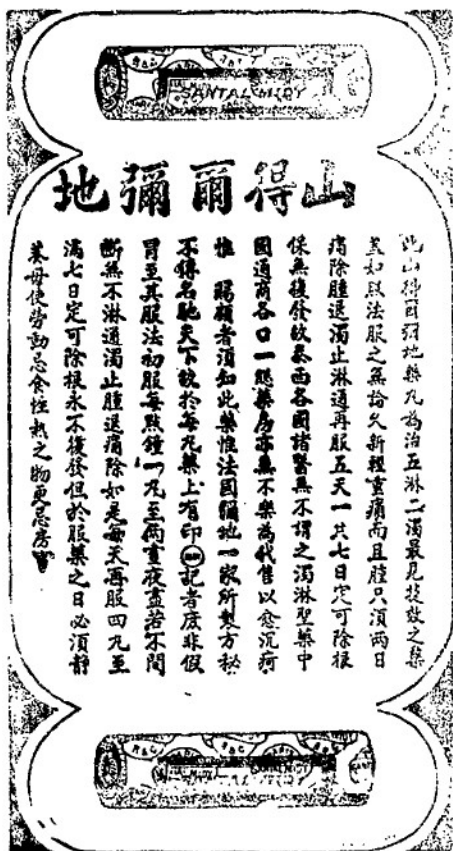 SANTAL MIDY
山得爾彌地
此山得爾彌地藥丸為治五淋二濁最見技效之藥
如照法服之無論久新輕重痛而且腫只須兩日
痛除腫退濁止淋通再服五天一共七日定可除根
保無復發故泰西各國諸醫無不謂之濁淋聖藥中
國通商各口一驰藥房亦無不樂為代售以愈沉疴
惟 賜顧者須知此藥惟法國彌地一家所製方秘
不傳名馳天下故於每丸藥上有印記者庶非假
冒至其服法初服每點鐘一丸至兩晝夜盡若不間
斷無不淋通濁止腫退痛除如是每天再服四丸至
滿七日定可除根永不復發但於服藥之日必須靜
養毋使勞動忌食性熱之物更忌房